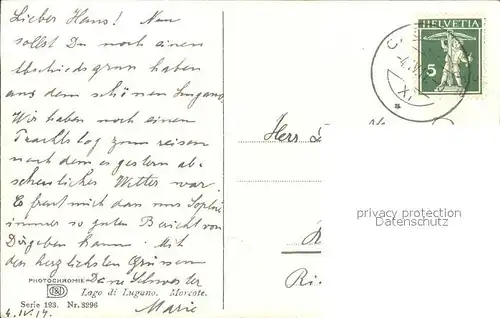 Lieber Hans! Nun
sollst Du noch einen
Abschiedsgruss haben
aus dem schönen Lugano
Wir haben noch einen
zum reisen
nach dem es gestern ab-
scheuliches Wetter war.
Es freut mich dass uns Sophie
immer so guten Bericht von
Dir geben kann. Mit
den herzlichsten Grüssen
Deine Schwester
Marie
PHOTOCHROMIE
Lago di Lugano. Morcote.
Serie 193. Nr. 3296
4.IV.17.
HELVETIA
5
Herr
privacy protection
Datenschutz